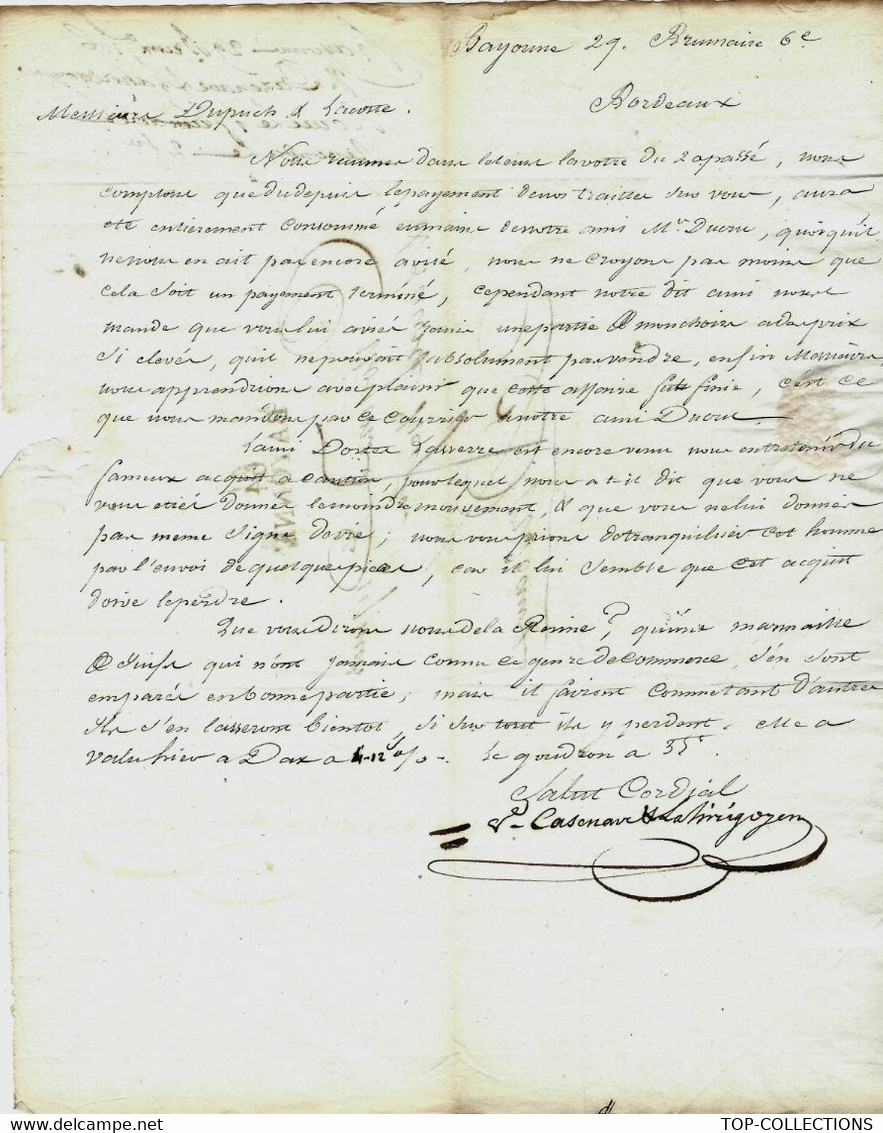 Bayonne 29. Brumaire 6e
Messieurs Dupuch & Lacoste. Bordeaux
Nous dans la votre du 2 apassé, nous
comptons que du depuis lepayement denos traittes sur vous, aura
eté entierement consommé enmains denotre ami Mr. Ducru, quoiquil
nenous en ait pas encore avisé, nous ne croyons pas moins que
cela soit un payement terminé, cependant notre dit ami nous
mande que vous lui aviés fourni unepartie de mouchoirs ades prix
si elevés, quil nepouvait absolument pas vendre, enfin Messieurs
nous apprendrions avec plaisir que cette affaire futt finie, c'est ce
que nous mandons par ce courrier anotre ami Ducru.
Lami Dorte Lasserre est encore venu nous entretenir du
fameux acquit a caution, pour lequel nous a t-il dit que vous ne
vous etiés donnés lemoindre mouvement, & que vous nelui donniés
pas meme signe devie; nous vous prions detranquiliser cet homme
par l'envoi de quelque pièce, car il lui semble que cet acquit
doive leperdre.
Que vous dirons nous dela Resine? quinze marmaille
de Juifs qui n'ont jamais connu ce genre de commerce, s'en sont
emparés en bonne partie; mais il fairont comme tant d'autres
ils s'en lasseront bientot, si sur tout ils y perdent. elle a
valu hier a Dax a 4-12s %. Le goudron a 35s.
Salut Cordial
Ve. Casenave & Lahirigoyen
TOP-COLLECTIONS